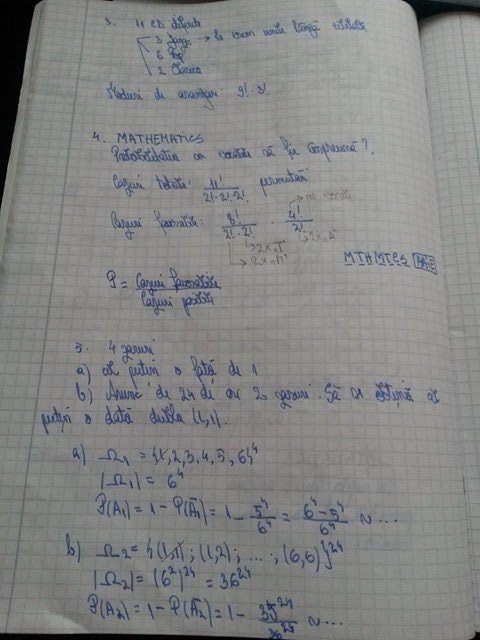 3. 11 CD diferite
3 Jazz → le vrem unele lângă celelalte
6 Pop
2 Clasica
Moduri de aranjare: 9! · 3!
4. MATHEMATICS
Probabilitatea ca vocalele să fie împreună?
Cazuri totale: 11! / 2!·2!·2! permutări
Cazuri favorabile: 8! / 2!·2! · 4! / 2! → vocale
→ 2x„T” → 2x„A”
→ 2x„M”
MTHMTCS AAEI
P = Cazuri favorabile / Cazuri posibile
5. 4 zaruri
a) cel puțin o față de 1
b) Arunc de 24 de ori 2 zaruri. Să se obțină cel
puțin o dată dubla (1,1).
a) Ω₁ = {1,2,3,4,5,6}⁴
|Ω₁| = 6⁴
P(A₁) = 1 - P(Ā₁) = 1 - 5⁴/6⁴ = 6⁴-5⁴/6⁴ ≈ ...
b) Ω₂ = {(1,1); (1,2); ...; (6,6)}²⁴
|Ω₂| = (6²)²⁴ = 36²⁴
P(A₂) = 1 - P(Ā₂) = 1 - 35²⁴/36²⁴ ≈ ...